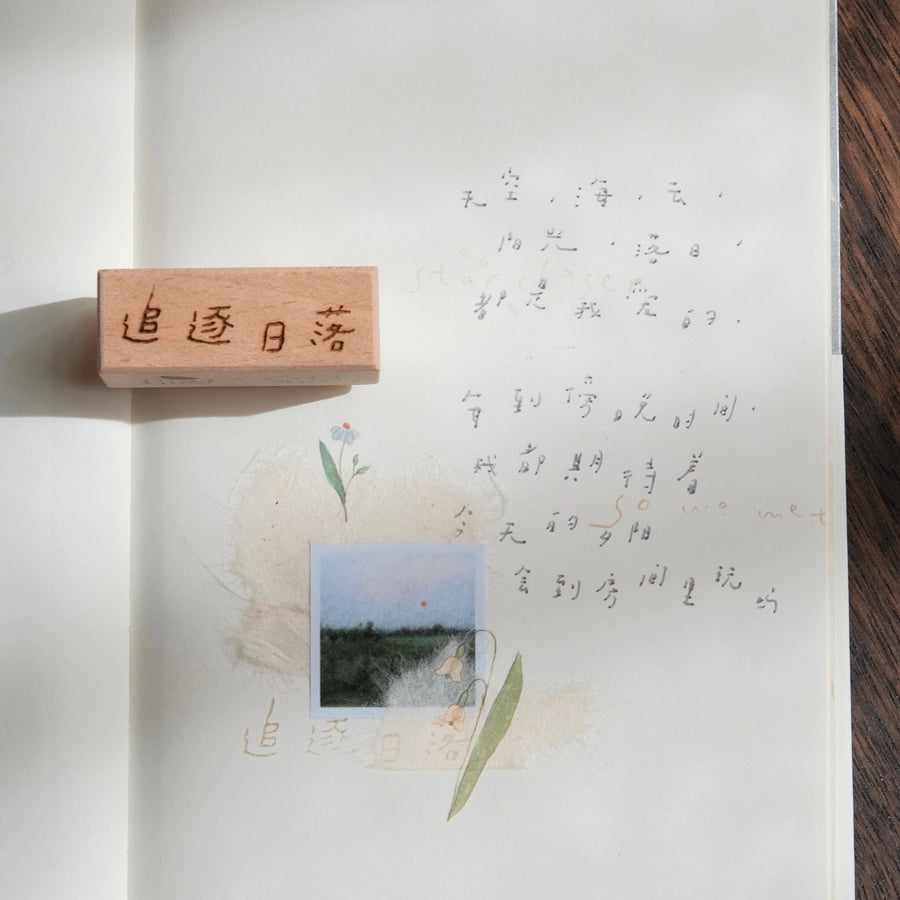 天空,海,云,
阳光,落日,
都是我爱的.
追逐日落
每到傍晚时间.
我都期待着
今天的夕阳
So we met
会到房间里玩吗
追逐日落